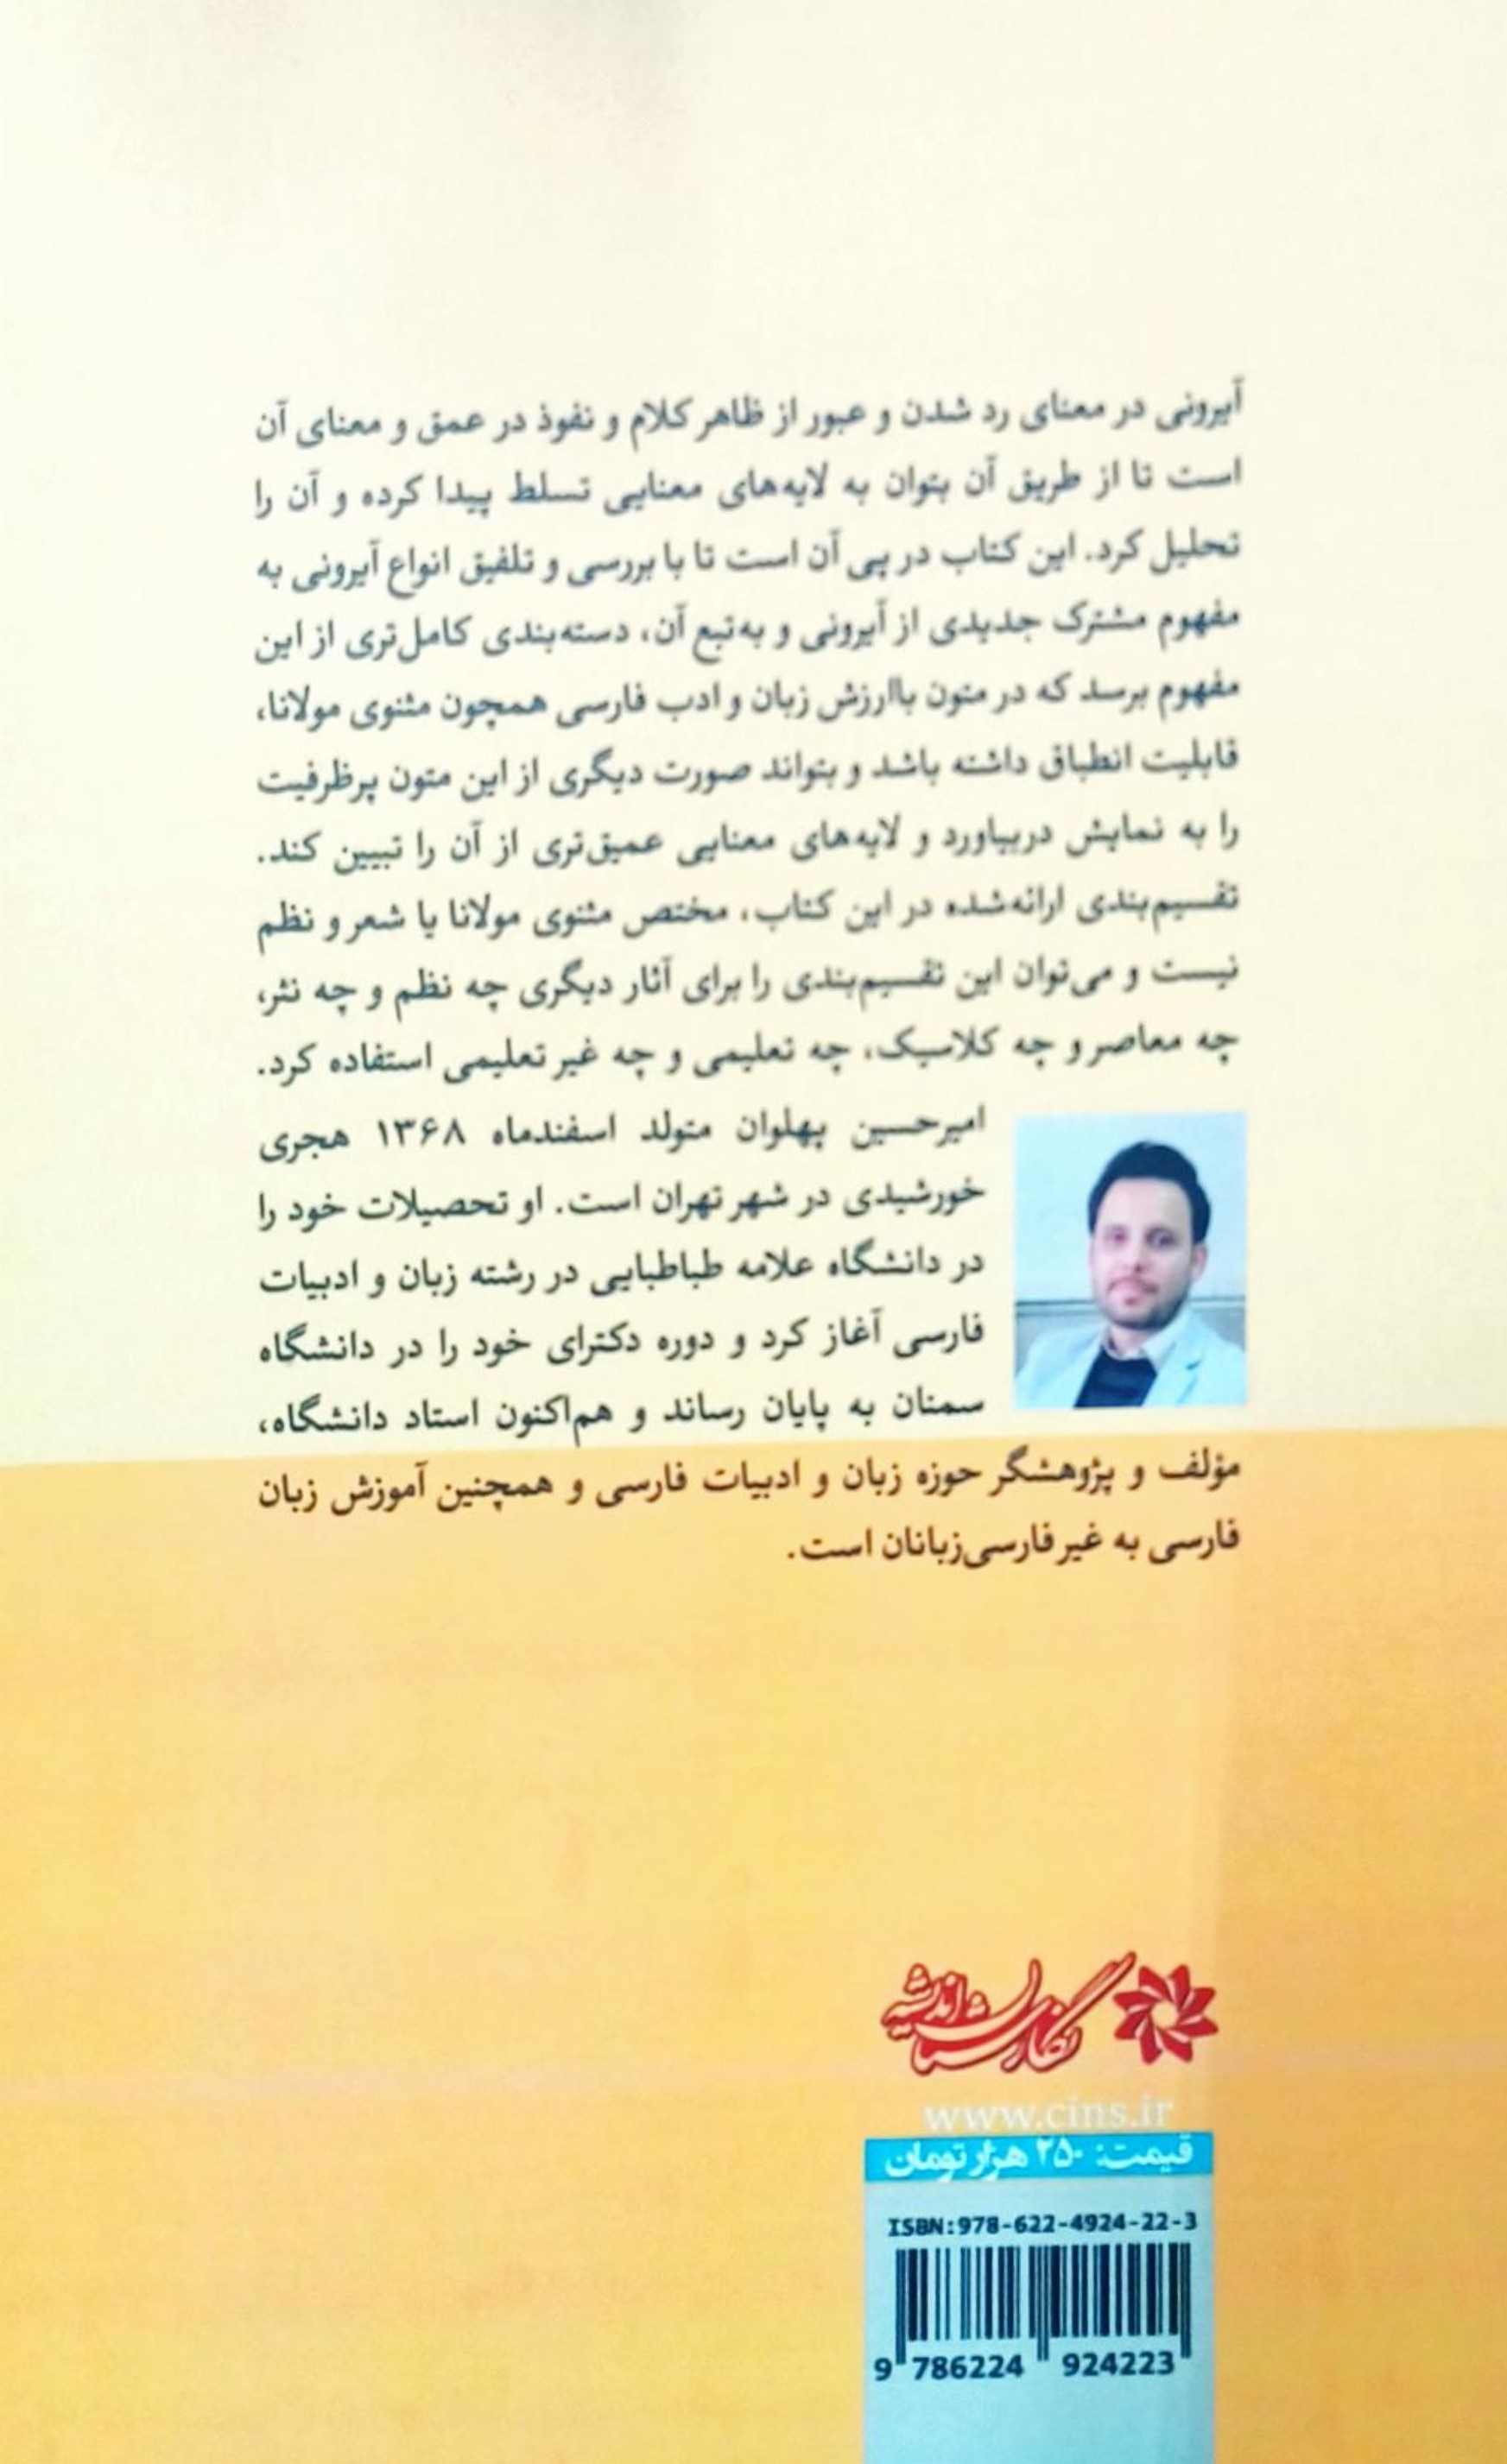 آیرونی در معنای رد شدن و عبور از ظاهر کلام و نفوذ در عمق و معنای آن
است تا از طریق آن بتوان به لایه‌های معنایی تسلط پیدا کرده و آن را
تحلیل کرد. این کتاب در پی آن است تا با بررسی و تلفیق انواع آیرونی به
مفهوم مشترک جدیدی از آیرونی و به‌تبع آن، دسته‌بندی کامل‌تری از این
مفهوم برسد که در متون باارزش زبان و ادب فارسی همچون مثنوی مولانا،
قابلیت انطباق داشته باشد و بتواند صورت دیگری از این متون پرظرفیت
را به نمایش دربیاورد و لایه‌های معنایی عمیق‌تری از آن را تبیین کند.
تقسیم‌بندی ارائه‌شده در این کتاب، مختص مثنوی مولانا یا شعر و نظم
نیست و می‌توان این تقسیم‌بندی را برای آثار دیگری چه نظم و چه نثر،
چه معاصر و چه کلاسیک، چه تعلیمی و چه غیر تعلیمی استفاده کرد.
امیرحسین پهلوان متولد اسفندماه ۱۳۶۸ هجری
خورشیدی در شهر تهران است. او تحصیلات خود را
در دانشگاه علامه طباطبایی در رشته زبان و ادبیات
فارسی آغاز کرد و دوره دکترای خود را در دانشگاه
سمنان به پایان رساند و هم‌اکنون استاد دانشگاه،
مؤلف و پژوهشگر حوزه زبان و ادبیات فارسی و همچنین آموزش زبان
فارسی به غیر فارسی‌زبانان است.
نگارستان اندیشه
www.cins.ir
قیمت: ۲۵۰ هزار تومان
ISBN:978-622-4924-22-3
9 786224 924223